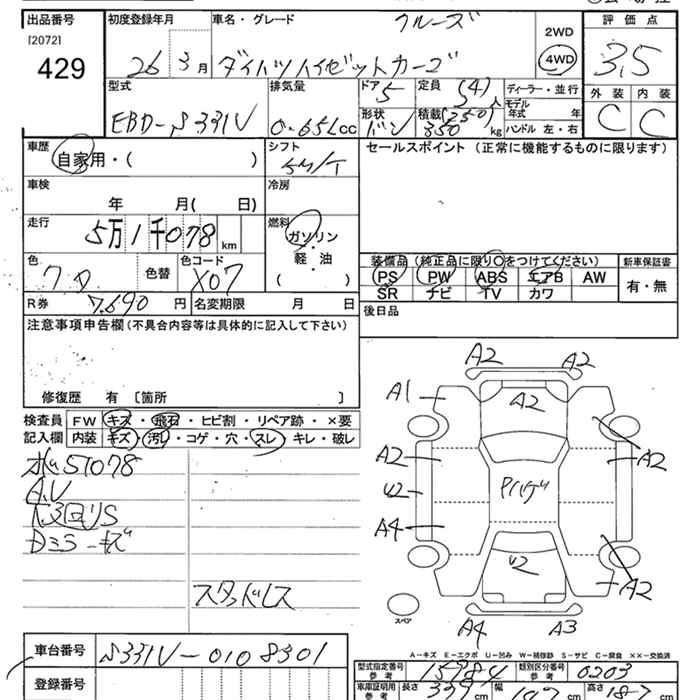 出品番号 初度登録年月 車名・グレード クルーズ 2WD 評価点
[2072] 429 26 3月 ダイハツハイゼットカーゴ 4WD 3.5
型式 排気量 ドア 5 定員 (4) 人 ディーラー・並行 外装 内装
EBD-S331V 0.65Lcc 形状 バン 積載 (250) 350 kg モデル年式 年 C C
ハンドル 左・右
車歴 自家用・( ) シフト 5M/T セールスポイント (正常に機能するものに限ります)
車検 年 月( 日) 冷房
走行 5万1千078 km 燃料 ガソリン
軽・油
( )
色 色替 色コード X07
装備品(純正品に限り○をつけてください) 新車保証書
PS PW ABS エアB AW 有・無
SR ナビ TV カワ
R券 7,690円 名変期限 月 日 後日品
注意事項申告欄(不具合内容等は具体的に記入して下さい)
修復歴 有 〔箇所 〕
検査員 FW キズ・飛石・ヒビ割・リペア跡・×要
記入欄 内装 キズ・汚れ・コゲ・穴・スレ・キレ・破レ
51078
スタッドレス
A2 A2
A1 A2
A2 A2
U2
A4
U2 A2
スペア
A4 A3
A-キズ E-エクボ U-凹み W-補修跡 S-サビ C-腐食 ××-交換済
車台番号 S331V-0108301
型式指定番号 参考 15984 類別区分番号 参考 0203
登録番号
車庫証明用 参考 長さ 339 cm 幅 147 cm 高さ 187 cm